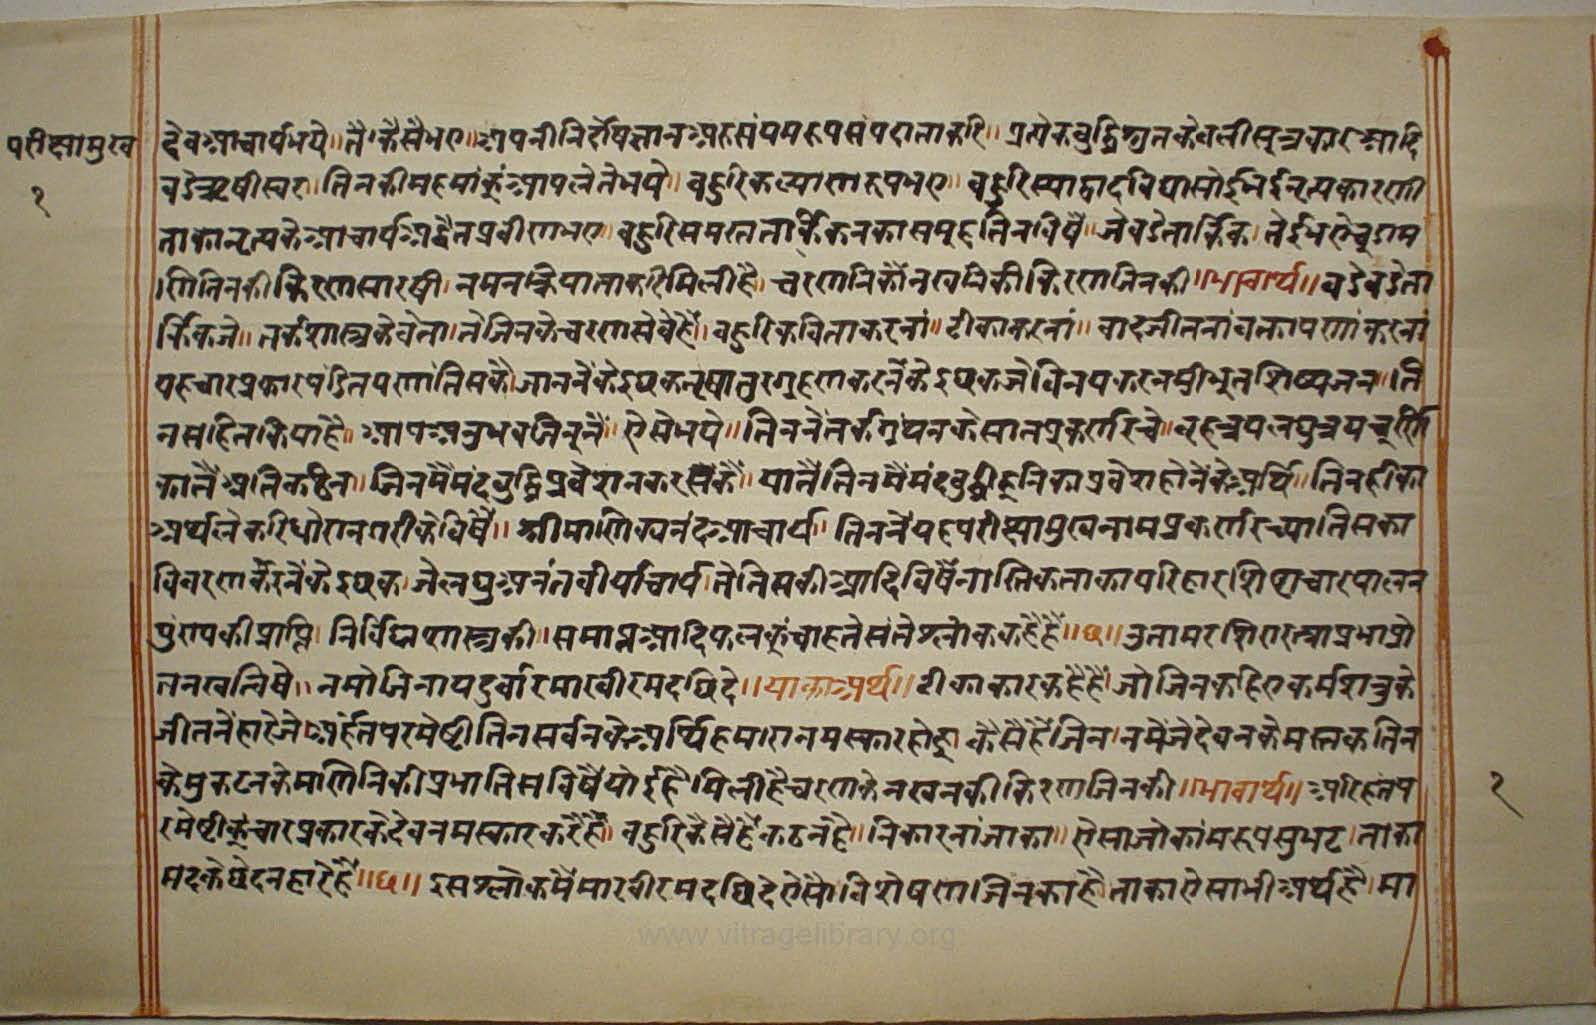 परीक्षामुख
१
देवआचार्यभये॥ तै कैसेभए॥ अपनीनिर्दोषज्ञानअरुसंयमरूपसंपदाताकरि॥ प्रत्येकबुद्धिश्रुतकेवलीसूत्रकारआदि
बडेऋषीस्वर॥ तिनकीमहिमांकूंआपलेतेभये॥ बहुरिकल्याणरूपभए॥ बहुरिस्याद्वादविद्यासोईभईनृत्यकारणी
ताकानृत्यकेआचार्यअद्वैतप्रवीणभए॥ बहुरिसमस्ततार्किकनकासमूहतिनविषै॥ जेबडेतार्किक॥ तेईभएचूडाम
णितिनकीकिरणसारषी॥ नमनक्रियाताकरिमिलीहै॥ चरणनिकीनखनिकीकिरणजिनकी॥ भावार्थ॥ बडेबडेता
र्किकजे॥ तर्कशास्त्रकेवेत्ता॥ तेजिनकेचरणसेवेहैं॥ बहुरिकविताकरनां॥ टीकाकरनां॥ वादजीतनांवक्तापणांकरनां
यहचारप्रकारपंडितपणांतिसकै॥ जाननेंकेइछुक
नसहितकियाहै॥ आपअनुभवजिनूनैं॥ ऐसेभये॥ तिननेंतर्कग्रंथनकेसातप्रकर्णरचे॥ बृहत्त्रयलघुत्रयचूर्णि
कातैंअतिकठिन॥ जिनमैंमंदबुद्धिप्रवेशनकरसकैं॥ यातैंतिनमैंमंदबुद्धीहूनिकाप्रवेशहोनेंकेअर्थि॥ तिनहीका
अर्थलेकरिधारानगरीकेविषैं॥ श्रीमाणिक्यनंदआचार्य॥ तिननेंयहपरीक्षामुखनामप्रकर्णरच्यातिसका
विवरणकरनेंकेइछुक॥ जेलघुअनंतवीर्याचार्य॥ तेतिसकीआदिविषैंनास्तिकताकापरिहारशिष्टाचारपालन
पुंण्यकीप्राप्ति॥ निर्विघ्नशास्त्रकी॥ समाप्तआदिफलकूंचाहतेसंतेश्लोककहैहैं॥ छ॥ नतामरशिरोरत्नप्रभाप्रो
तनखत्विषे॥ नमोजिनायदुर्वारमारवीरमदछिदे॥ याकाअर्थ॥ टीकाकारकहैहैं॥ जोजिनकहिएकर्मशत्रुके
जीतनेंहारेजेअर्हंतपरमेष्टीतिनसर्वनकेअर्थिहमारानमस्कारहोहू॥ कैसैहैंजिन॥ नमेंजेदेवनकेमस्तकतिन
केमुकटनकेमाणिनिकीप्रभातिसविषैंयोईहै॥ मिलीहैचरणकेनखनकीकिरणजिनकी॥ भावार्थ॥ अरिहंतप
रमेष्टीकूंचारप्रकारकेदेवनमस्कारकरैहैं॥ बहुरिकैसेहैंकठनहै॥ निकारनांजाका॥ ऐसाजोकांमरूपसुभट॥ ताका
मदकेछेदनहारेहैं॥ छ॥ इसश्लोकमैंमारवीरमदछिदेऐसौविशेषणजिनकाहैताकाऐसाभीअर्थहै॥ मा
१
www.vitragelibrary.org